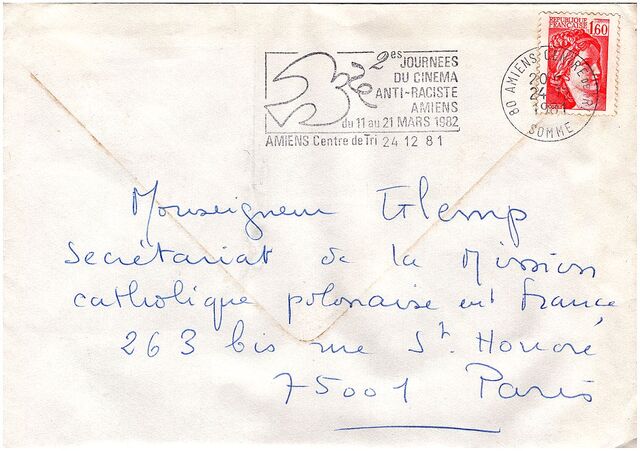 2es JOURNEES
DU CINEMA
ANTI-RACISTE
AMIENS
du 11 au 21 MARS 1982
AMIENS Centre de Tri 24 12 81
REPUBLIQUE
FRANCAISE
1,60
80 AMIENS CENTRE DE TRI
24
1981
SOMME
Monseigneur Glemp
Secrétariat de la Mission
catholique polonaise en France
263 bis rue St. Honoré
75001 Paris